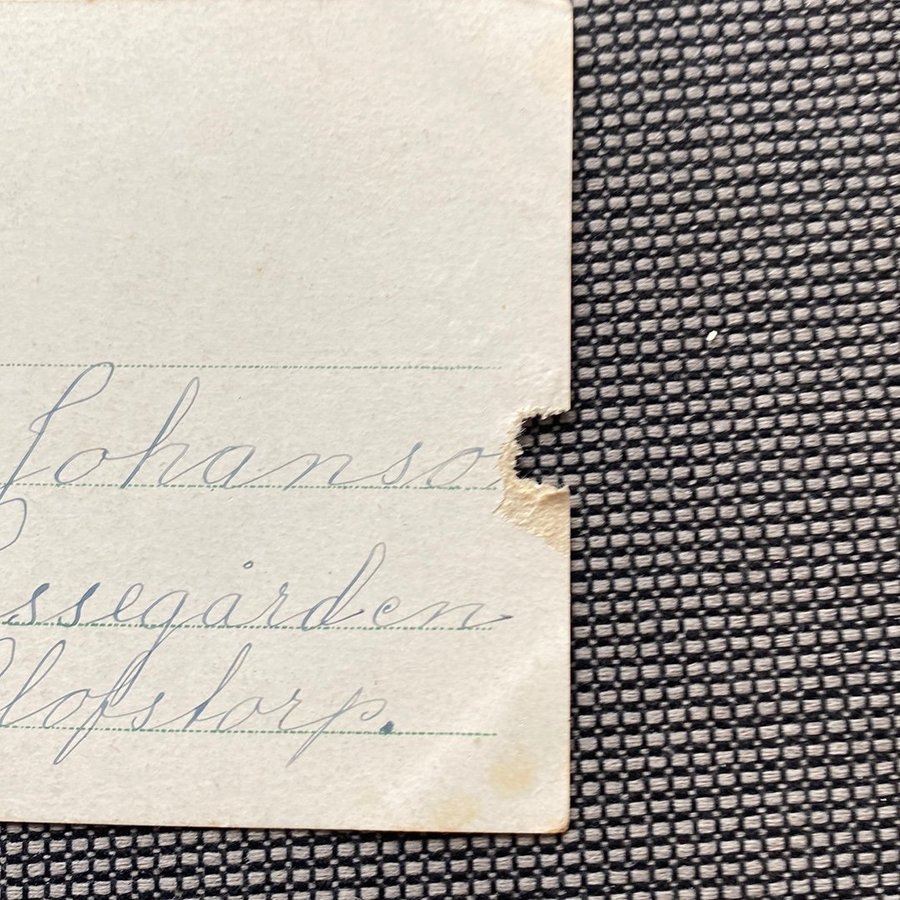 Johanso
ssegården
lofstorp.